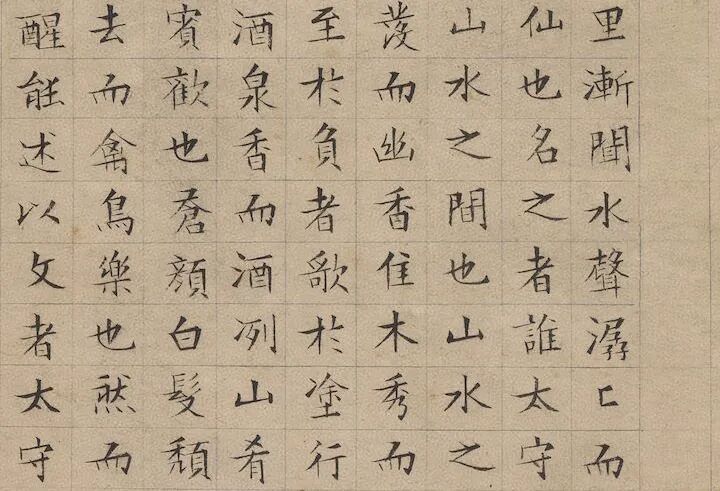 里漸聞水聲潺匕而
仙也名之者誰太守
山水之間也山水之
發而幽香佳木秀而
至於負者歌於塗行
酒泉香而酒冽山肴
賓歡也蒼顏白髮頹
去而禽鳥樂也然而
醒能述以文者太守